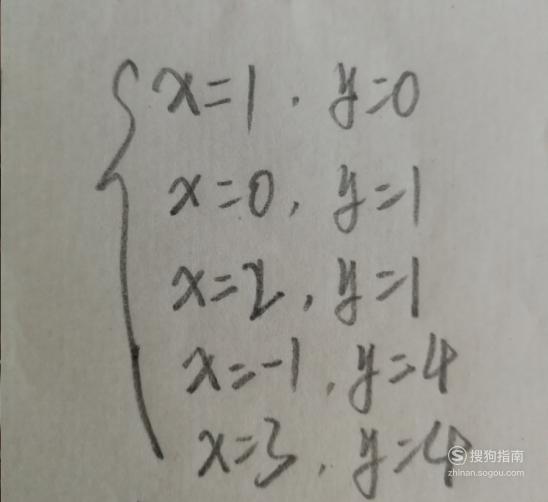 x=1, y=0
x=0, y=1
x=2, y=1
x=-1, y=4
x=3, y=4
搜狗指南
zhinan.sogou.com